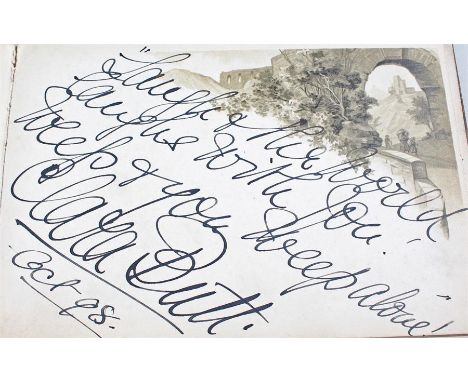 "Laugh & the World
Laughs with you.
Weep & you weep alone"!
Clara Butt.
Oct 98.